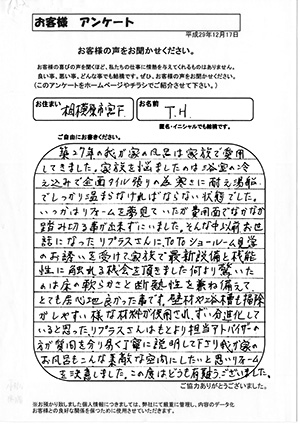 お客様 アンケート
平成29年12月17日
お客様の声をお聞かせください。
お客様の喜びの声を聞くほど、私たちの仕事に情熱を与えてくれるものはありません。
良い事、悪い事、どんな事でも結構です。ぜひ、お客様の声をお聞かせください。
(このアンケートをホームページやチラシでご紹介させて下さい。)
お住まい
相模原市
お名前
T.H.
匿名・イニシャルでも結構です。
ご自由にお書きください。
築27年の我が家の風呂は家族で愛用
してきました。家族を悩ましたのは浴室の冷
え込みで全面タイル張りの為寒さに耐え湯船
でしっかり温まなければならない状態でした。
いつかはリフォームを夢見ていたが費用面でなかなか
踏み切る事が出来ずにいました。そんな中以前お世
話になったリプラスさんに、TOTOショールーム見学
のお誘いを受けて家族で最新設備と機能
性に触れる機会を頂きました何より驚いた
のは床の軟らかさと断熱性を兼ね備えて、
とても居心地良かった事です。壁材や浴槽も掃除
がしやすい様な材料が使用され、ずい分進化して
いると思った。リプラスさんはもとより担当アドバイザーの
方が質問も分り易く丁寧に説明して下さり我が家の
お風呂もこんな素敵な空間にしたいと思いリフォーム
を決意しました。この度はどうも有難うございました。
ご協力ありがとうございました。
※お預かり致しました個人情報につきましては、弊社にて厳重に管理し、内容のデータ化
お客様との良好な関係を保つために使用させていただきます。